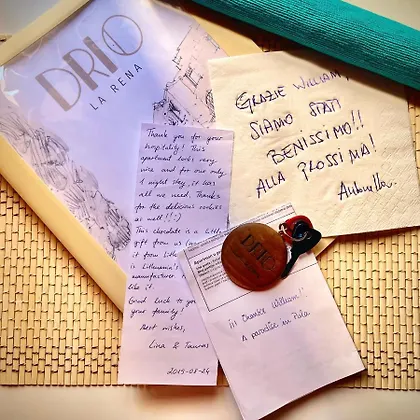 DRIO
LA RENA
GRAZIE WILLIAM,
SIAMO STATI
BENISSIMO!!
ALLA PROSSIMA!
Thank you for your
hospitality! This
apartment looks very
nice and for our only
1 night stay, it was
all we need. Thanks
for the delicious cookies
as well!! :)
This chocolate is a little
gift from us
it from Lith
is Lithuania's
manufacturer
like it.
Good luck to you
your family!
Best wishes,
Lina & Tauras
2019-08-24
DRIO
William!
A paradise in